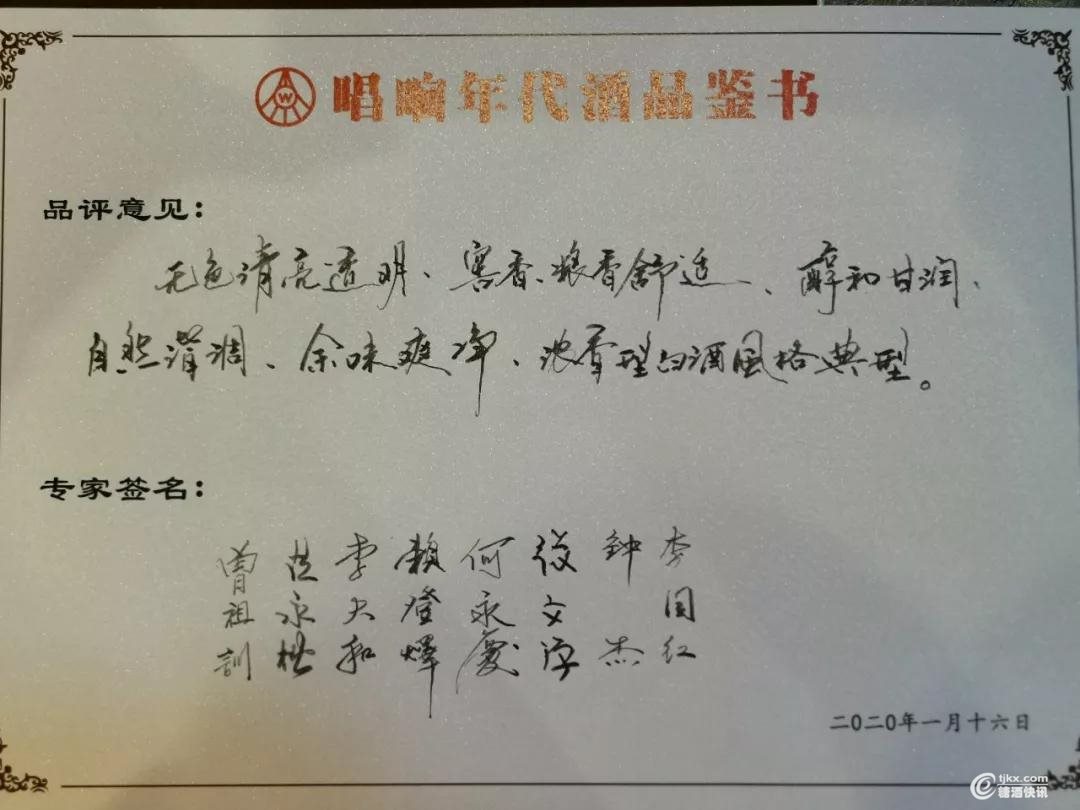 唱响年代酒品鉴书
品评意见：
无色清亮透明、窖香、粮香舒适、醇和甘润、
自然谐调、余味爽净、浓香型白酒風格典型。
专家签名：
曾祖訓
永楷
李大和
赖登燡
何永慶
文
钟杰
李国红
二〇二〇年一月十六日
tjkx.com
糖酒快讯